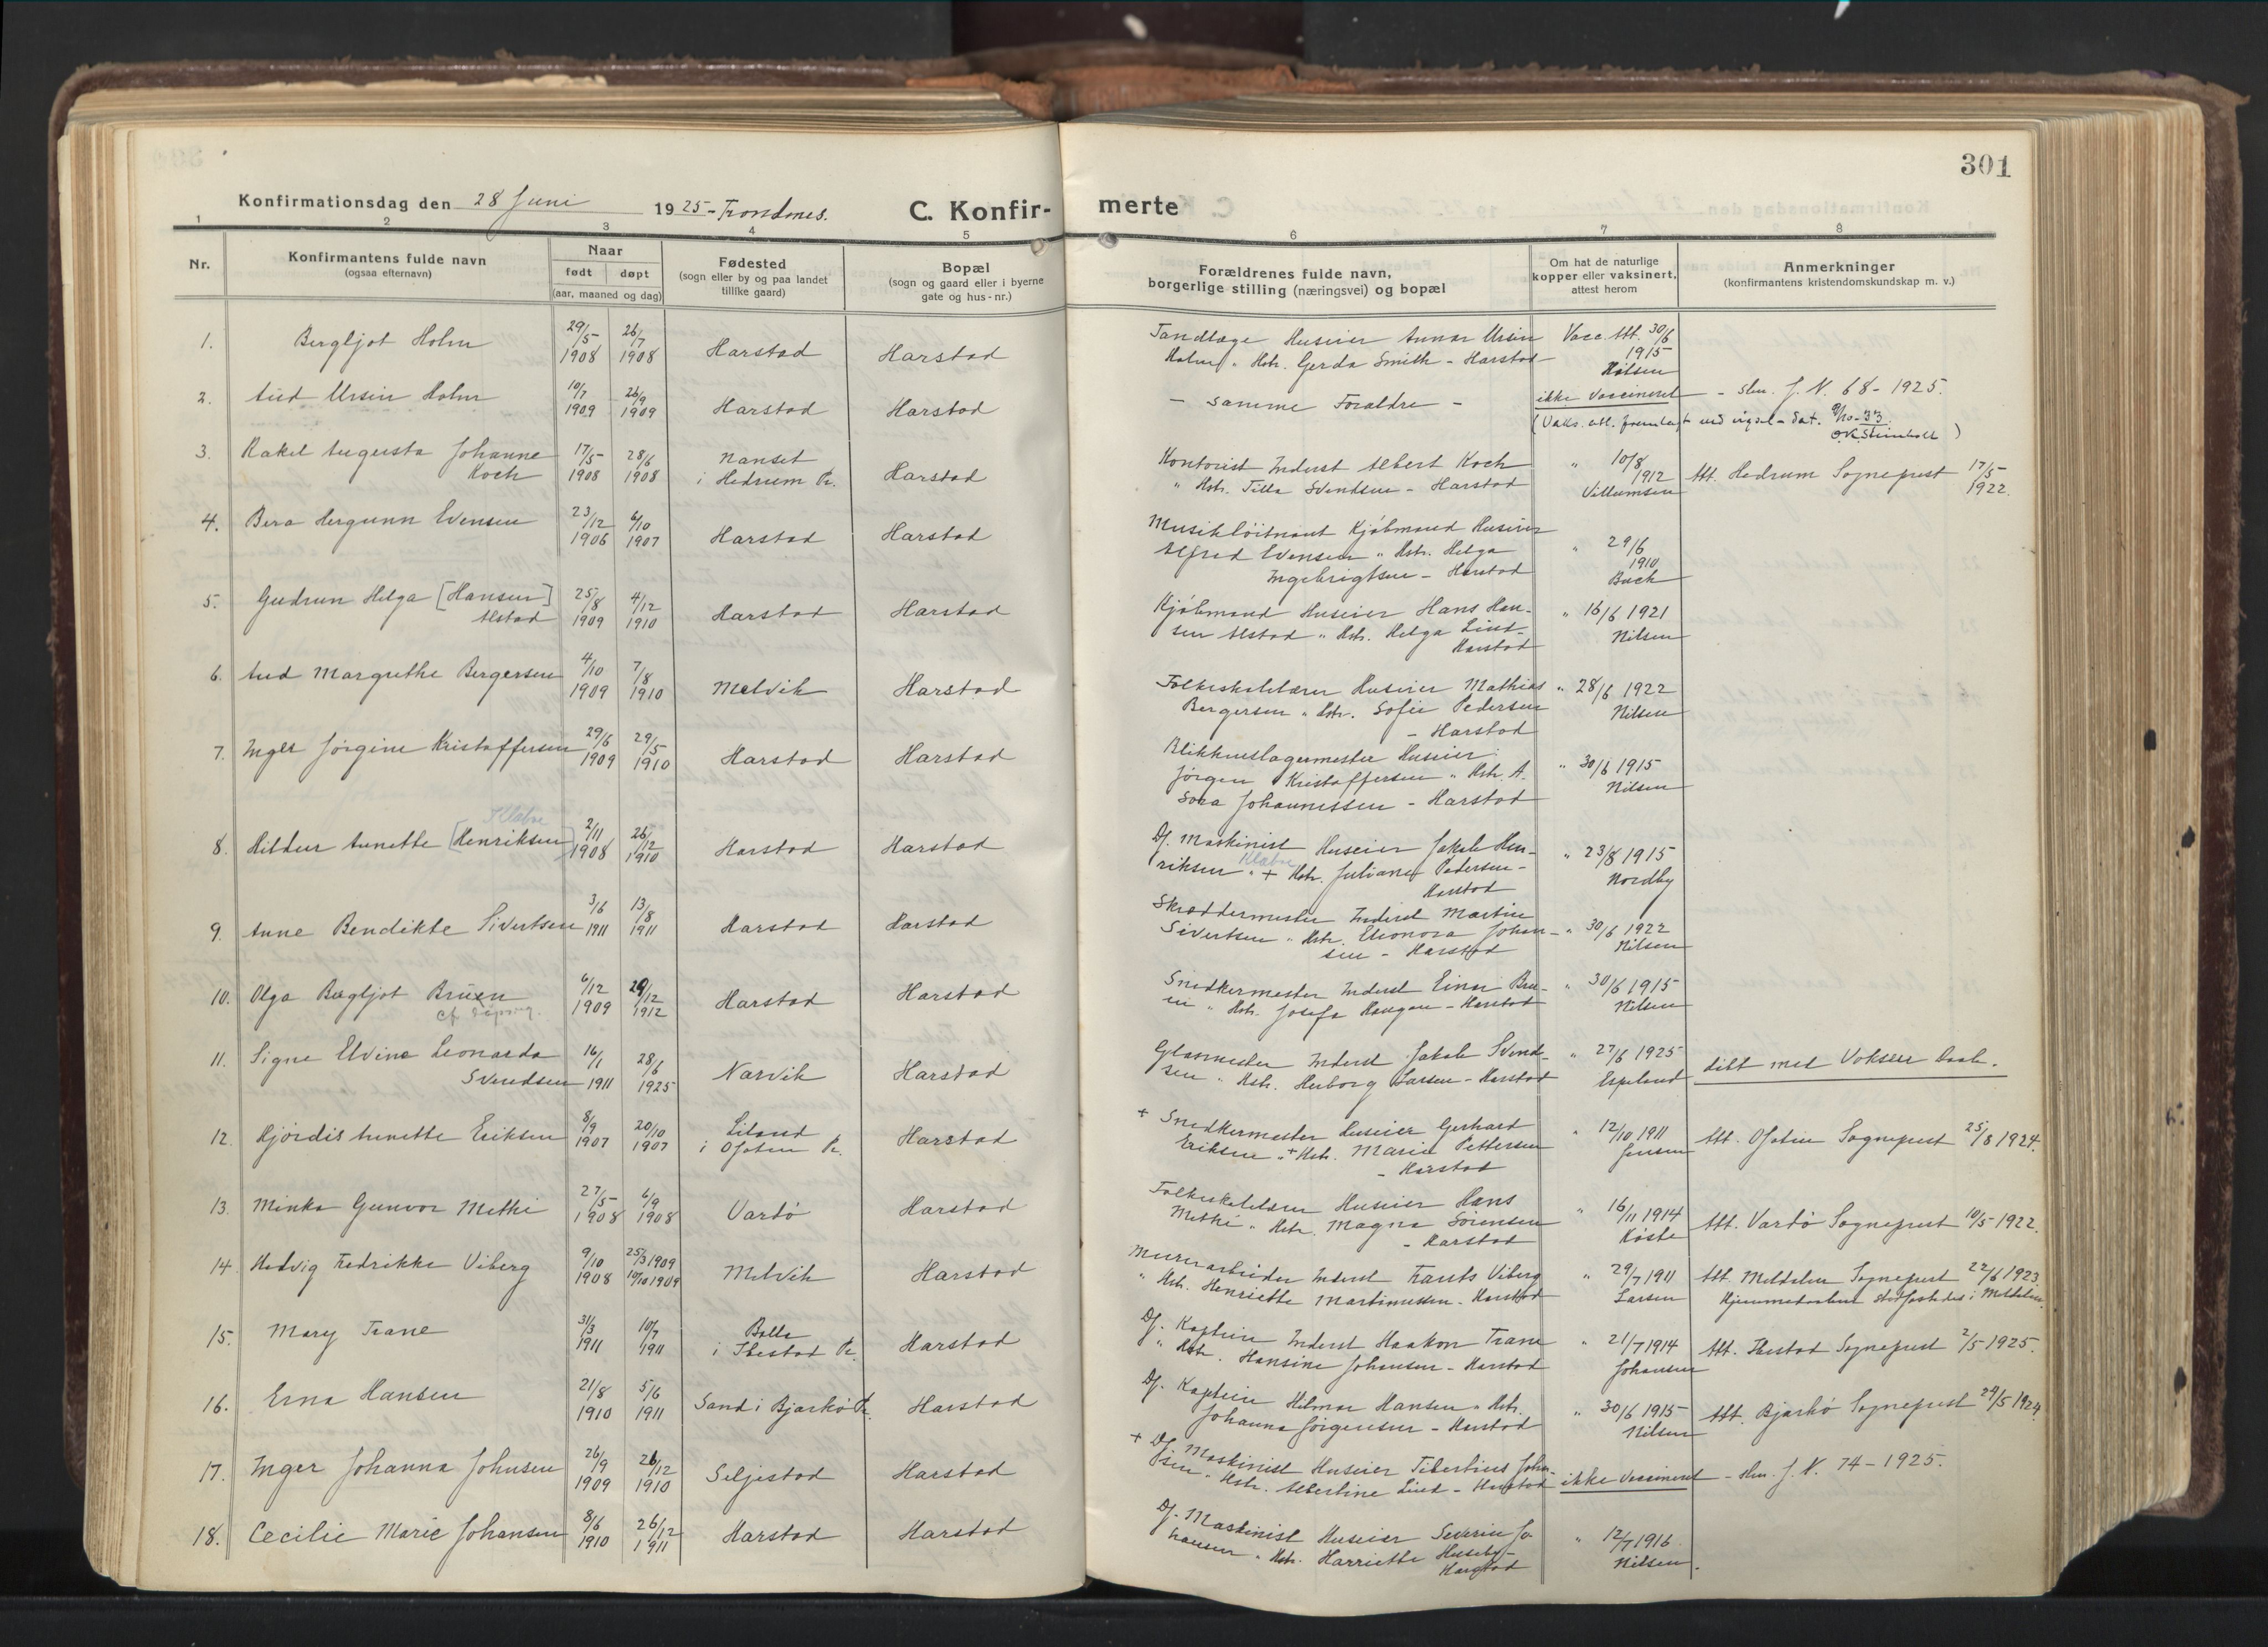 301
Konfirmationsdag den 28 Juni 1925 - Trondenes.
C. Konfirmerte
1 2 3 4 5 6 7 8
Nr.
Konfirmantens fulde navn
(ogsaa efternavn)
Naar
født døpt
(aar, maaned og dag)
Fødested
(sogn eller by og paa landet
tillike gaard)
Bopæl
(sogn og gaard eller i byerne
gate og hus-nr.)
Forældrenes fulde navn,
borgerlige stilling (næringsvei) og bopæl
Om hat de naturlige
kopper eller vaksinert,
attest herom
Anmerkninger
(konfirmantens kristendomskundskap m. v.)
1. Bergljot Holm 29/5 1908 26/7 1908 Harstad Harstad
Tandlæge Huseier Annar Ursin
Holm " Hstr. Gerda Smith - Harstad
Vacc. Att. 30/6
1915
Nilsen
2. Aud Ursin Holm 10/7 1909 26/9 1909 Harstad Harstad
- samme Foraldre -
ikke vaccineret - Skr. J. N. 68 - 1925.
(Vaks. att. fremlagt ved vigsel - dat. 9/10-33.
3. Rakel Augusta Johanne
Koch 17/5 1908 28/6 1908 Nanset
i Hedrum Pr. Harstad
Kontorist Inderst Albert Koch
" Hstr. Tilla Svendsen - Harstad
" 10/8 1912
Villumsen
Att. Hedrum Sogneprest 17/5 1922.
4. Bera Hergunn Evensen 23/12 1906 6/10 1907 Harstad Harstad
Musikløitnant Kjøbmand Huseier
Alfred Evensen " Hstr. Helga
Ingebrigtsen - Harstad
" 29/6 1910
Bach
5. Gudrun Helga [Hansen]
Alstad 25/8 1909 4/12 1910 Harstad Harstad
Kjøbmand Huseier Hans Han-
sen Alstad " Hstr. Helga Lind -
Harstad
" 16/6 1921
Nilsen
6. Aud Margrethe Bergersen 4/10 1909 7/8 1910 Malvik Harstad
Folkeskolelærer Huseier Mathias
Bergersen " Hstr. Sofie Pedersen
- Harstad
" 28/6 1922
Nilsen
7. Inger Jørgine Kristoffersen 29/6 1909 29/5 1910 Harstad Harstad
Blikkenslagermester Huseier
Jørgen Kristoffersen " Hstr. A.
Sora Johannessen - Harstad
" 30/6 1915
Nilsen
Klabre
8. Hildur Annette [Henriksen] 2/11 1908 26/12 1910 Harstad Harstad
Df. Maskinist Huseier Jakob Hen-
riksen Klabre " + Hstr. Juliane Pedersen -
Harstad
" 23/8 1915
Nordby
9. Anne Bendikte Sivertsen 3/6 1911 13/8 1911 Harstad Harstad
Skræddermester Inderst Martin
Sivertsen " Hstr. Eleonora Johan-
sen - Harstad
" 30/6 1922
Nilsen
10. Olga Bergljot Bruen 6/12 1909 29/12 1912 Harstad Harstad
Snedkermester Inderst Einar Bru-
en " Hstr. Josefa Haugan - Harstad
" 30/6 1915
Nilsen
11. Signe Elvine Leonarda
Svendsen 16/1 1911 28/6 1925 Narvik Harstad
Glasmester Inderst Jakob Svend-
sen " Hstr. Herborg Larsen - Harstad
" 27/6 1925
Espeland
døbt med Voksen Daab.
12. Hjørdis Annette Eriksen 8/9 1907 20/10 1907 Liland
i Ofoten Pr. Harstad
+ Snedkermester Huseier Gerhard
Eriksen " + Hstr. Marie Pettersen
- Harstad
" 12/10 1911
Jensen
Att. Ofoten Sogneprest 25/8 1924.
13. Minka Gunvor Methi 27/5 1908 6/9 1908 Vardø Harstad
Folkeskolelærer Huseier Hans
Methi " Hstr. Magna Sørensen
- Harstad
" 16/11 1914
Køste
Att. Vardø Sogneprest 10/5 1922.
14. Hedvig Fredrikke Viberg 9/10 1908 25/3 1909
10/10 1909 Melvik Harstad
Murerarbeider Inderst Frants Viberg
" Hstr. Henriette Martinussen - Harstad
" 29/7 1911
Larsen
Att. Meldalen Sogneprest 22/6 1923.
Hjemmedaaben stadfæstedes i Meldalen.
15. Mary Trane 31/3 1911 10/7 1911 Balla
i Ibestad Pr. Harstad
Df. Kaptein Inderst Haakon Trane
" Hstr. Hansine Johansen - Harstad
" 21/7 1914
Johansen
Att. Ibestad Sogneprest 2/5 1925.
16. Erna Hansen 21/8 1910 5/6 1911 Sand i Bjarkø Pr. Harstad
Df. Kaptein Hilmar Hansen " Hstr.
Johanna Jørgensen - Harstad
" 30/6 1915
Nilsen
Att. Bjarkø Sogneprest 29/5 1924.
17. Inger Johanna Johnsen 26/9 1909 26/12 1910 Seljestad Harstad
+ Df. Maskinist Huseier Tibertius John-
sen " Hstr. Albertine Lind - Harstad
ikke vaccineret - Skr. J. N. 74 - 1925.
18. Cecilie Marie Johansen 8/6 1910 26/12 1911 Harstad Harstad
Df. Maskinist Huseier Severin Jo-
hansen " Hstr. Harriette Huseby -
Harstad
" 12/7 1916
Nilsen.